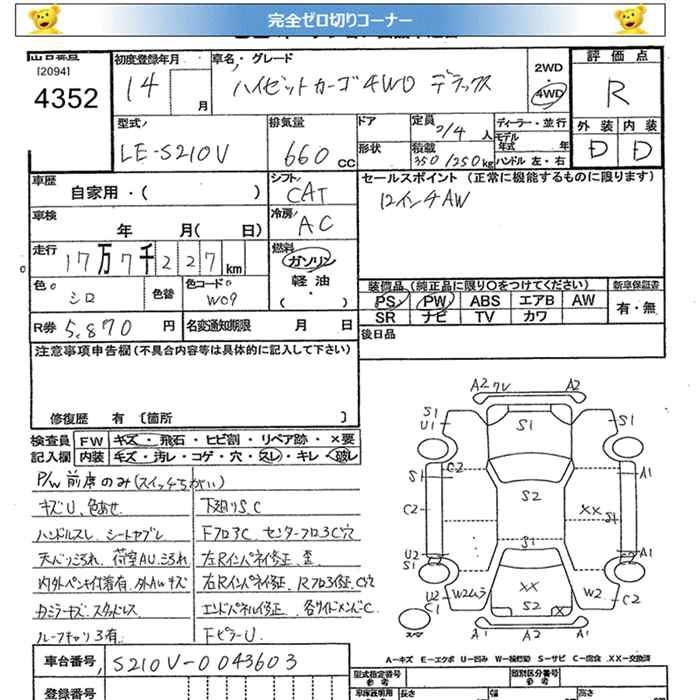 完全ゼロ切りコーナー
[2094]
4352
初度登録年月
14
月
車名・グレード
ハイゼットカーゴ4WD デラックス
2WD
4WD
評価点
R
外装 内装
D D
型式
LE-S210V
排気量
660 cc
ドア
形状
定員
2/4 人
積載
350/250 kg
ディーラー・並行
モデル年式 年
ハンドル 左・右
車歴
自家用・( )
車検
年 月( 日)
シフト
CAT
冷房
AC
セールスポイント (正常に機能するものに限ります)
12インチAW
走行
17万7千227km
燃料
ガソリン
軽油
・
( )
色
シロ
色替
色コード
W09
装備品(純正品に限り○をつけてください)
新車保証書
PS PW ABS エアB AW
SR ナビ TV カワ
有・無
R券 5,870 円
名変通知期限 月 日
後日品
注意事項申告欄(不具合内容等は具体的に記入して下さい)
修復歴 有 〔箇所 〕
検査員記入欄
FW キズ・飛石・ヒビ割・リペア跡・×要
内装 キズ・汚レ・コゲ・穴・スレ・キレ・破レ
P/W前席のみ(スイッチちがい)
キズU、色あせ
下廻りS.C
ハンドルスレ シートヤブレ
Fフロア C センターフロア C穴
天バリ汚れ、荷室AU、汚れ
左Rインパネイ修正、歪
内外ペンキ付着有、外AWキズ
右Rインパネイ修正 Rフロア修正、C穴
カラミーキズ、スタッドレス
エンドパネル修正 各サイドメンバC
ルーフキャリア有
FピラーU
A2 ワレ A2
S1
U1
S1
S1
C2
S1
A1
C2
S2
XX
S1
S1
U2
S1
A1
U2
C1
W2ムラ
XX
S2
X
W2
C2
スペア
A1 A2 A1
A－キズ E－エクボ U－凹み W－補修跡 S－サビ C－腐食 XX－交換済
車台番号
S210V-0043603
登録番号
型式指定番号
類別区分番号
車庫証明用参考
長さ
幅
高さ